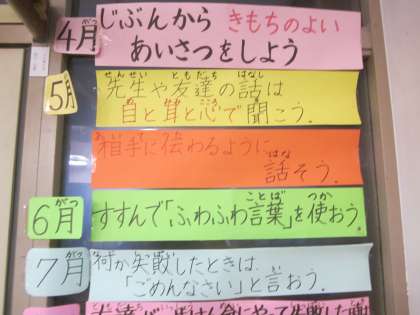 4月 じぶんから きもちのよい
あいさつをしよう
5月 先生や友達の話は
目と耳と心で聞こう。
相手に伝わるように
話そう。
6月 すすんで「ふわふわ言葉」を使おう。
7月 何か失敗したときは
「ごめんなさい」と言おう。